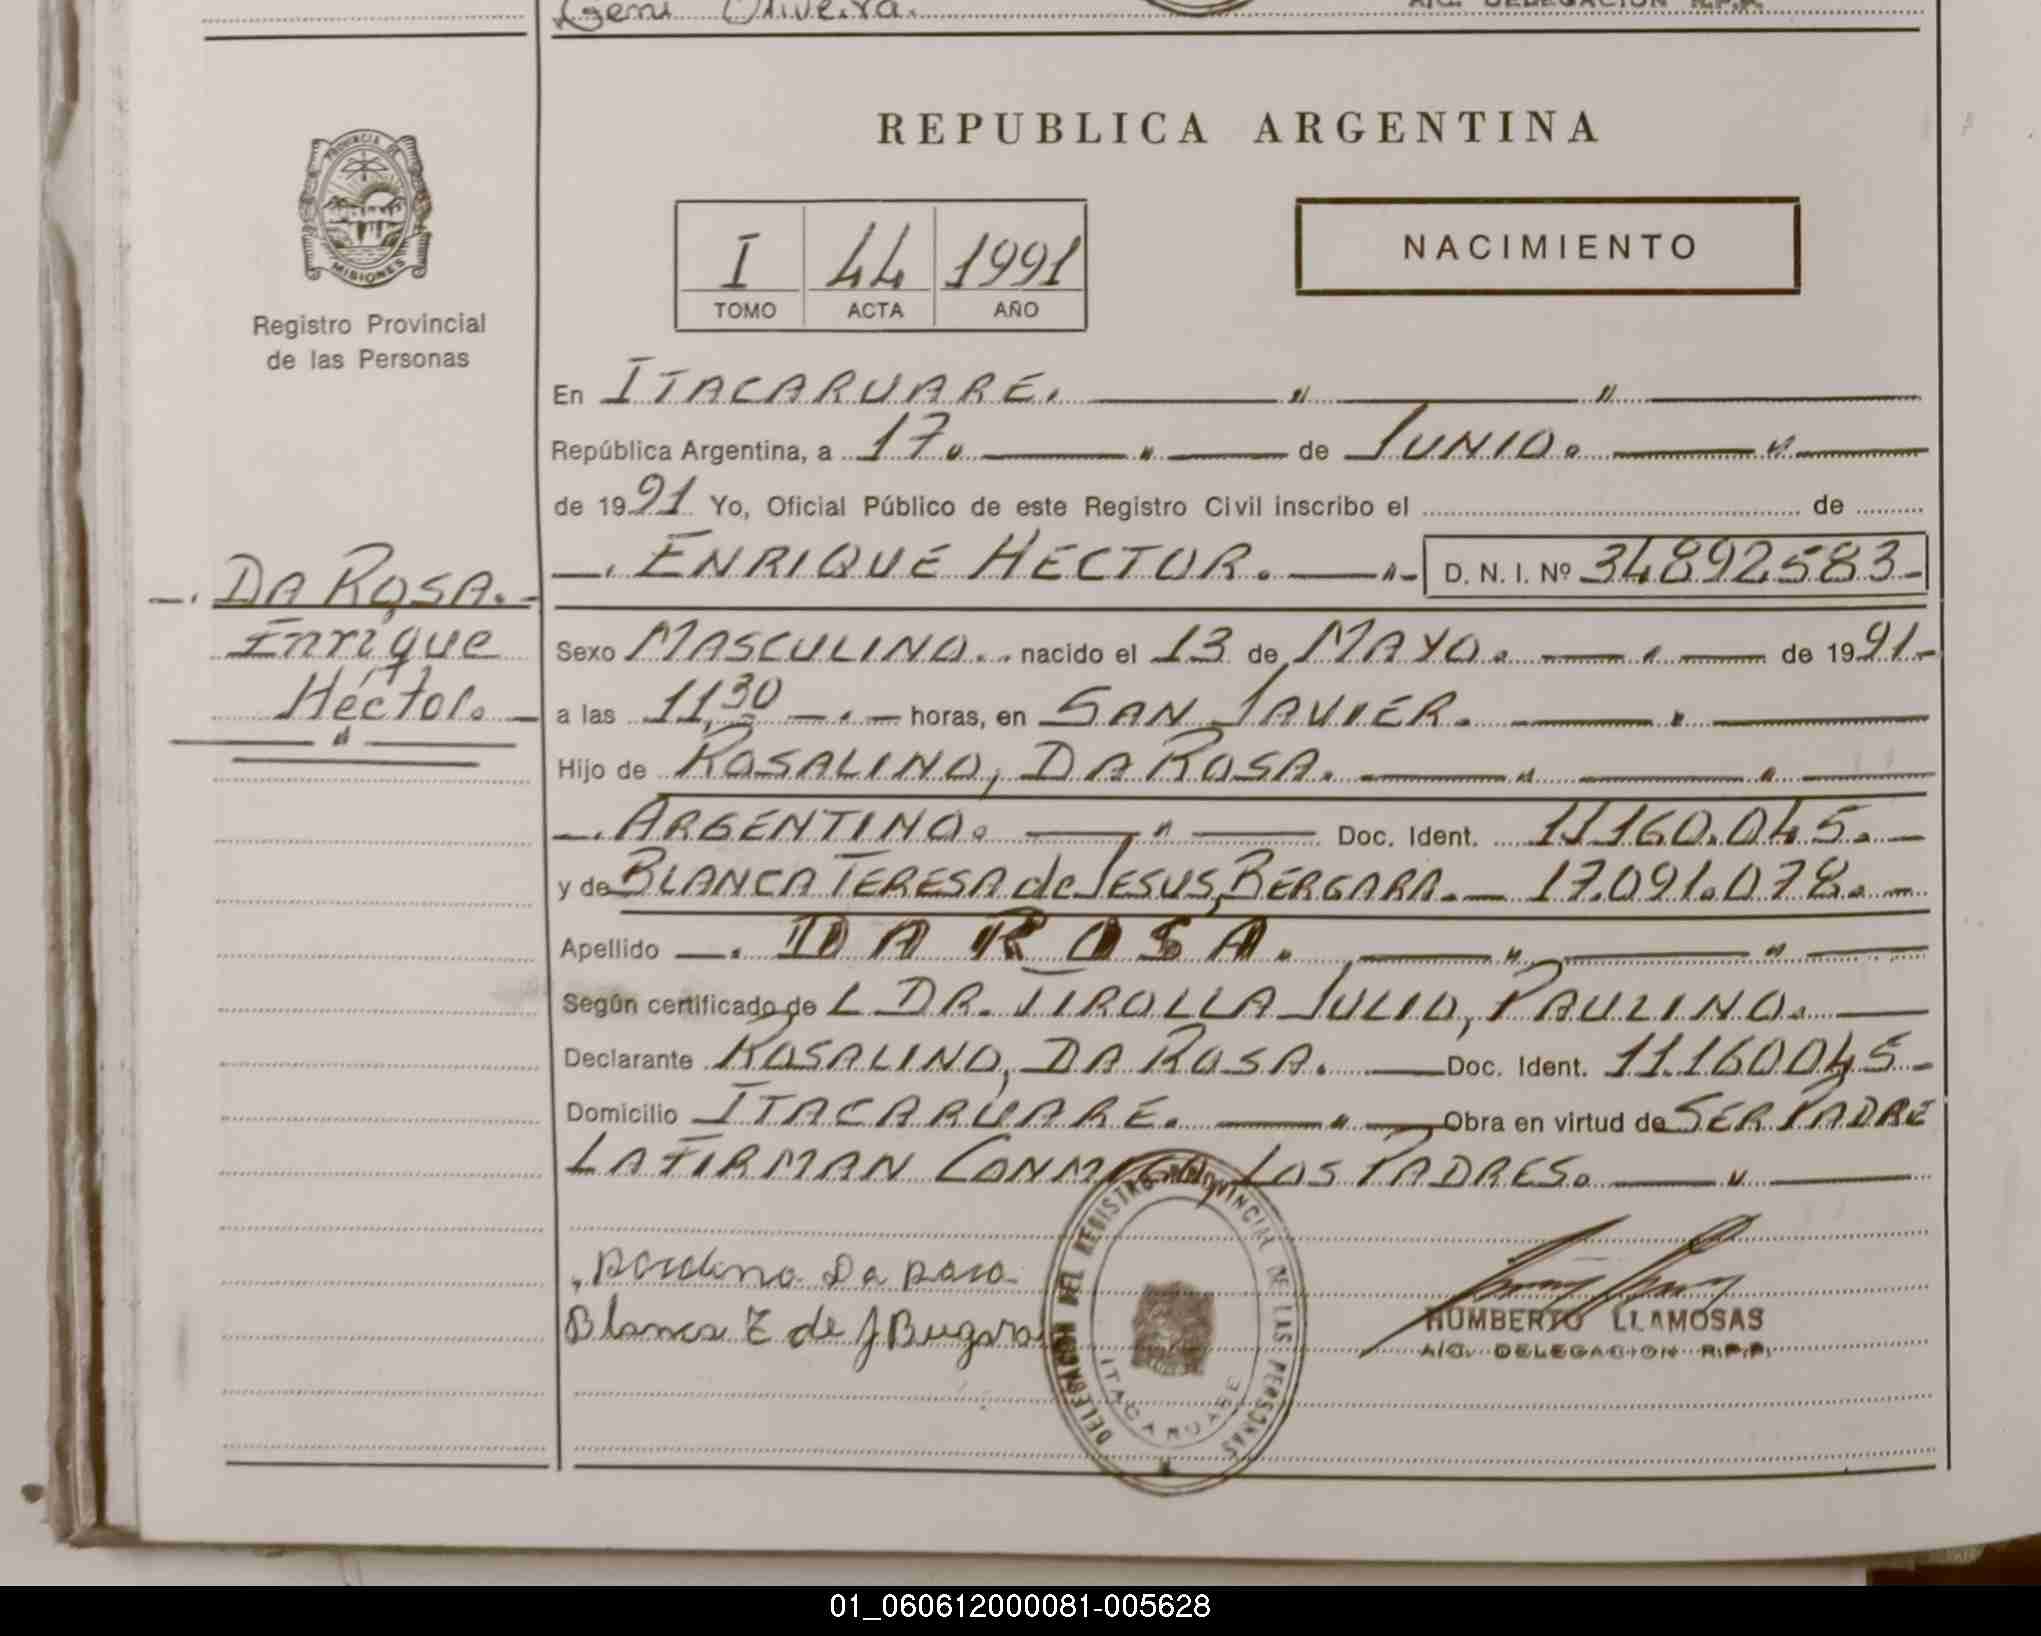 Ygeni Oliveira.
A/C. DELEGACION R.P.P.
PROVINCIA DE
MISIONES
Registro Provincial
de las Personas
REPUBLICA ARGENTINA
I 44 1991
TOMO ACTA AÑO
NACIMIENTO
En ITACARUARE.
República Argentina, a 17. de JUNIO.
de 1991 Yo, Oficial Público de este Registro Civil inscribo el de
ENRIQUE HECTOR. D. N. I. Nº 34892583-
DA ROSA.-
Enrique
Héctor.
Sexo MASCULINO. nacido el 13 de MAYO. de 1991-
a las 11,30 horas, en SAN JAVIER.
Hijo de ROSALINO, DA ROSA.
ARGENTINO. Doc. Ident. 11160.045.-
y de BLANCA TERESA de JESUS, BERGARA.- 17.091.078.-
Apellido DA ROSA.
Según certificado de L DR. TIROLLA JULIO, PAULINO.
Declarante ROSALINO, DA ROSA. Doc. Ident. 11.160045-
Domicilio ITACARUARE. Obra en virtud de SER PADRE
LA FIRMAN CONMIGO LOS PADRES.
Da Rosa
Blanca T de J Bergara
DELEGACION DEL REGISTRO PROVINCIAL DE LAS PERSONAS
ITACARUARE
HUMBERTO LLAMOSAS
A/C. DELEGACION R.P.P.
01_060612000081-005628